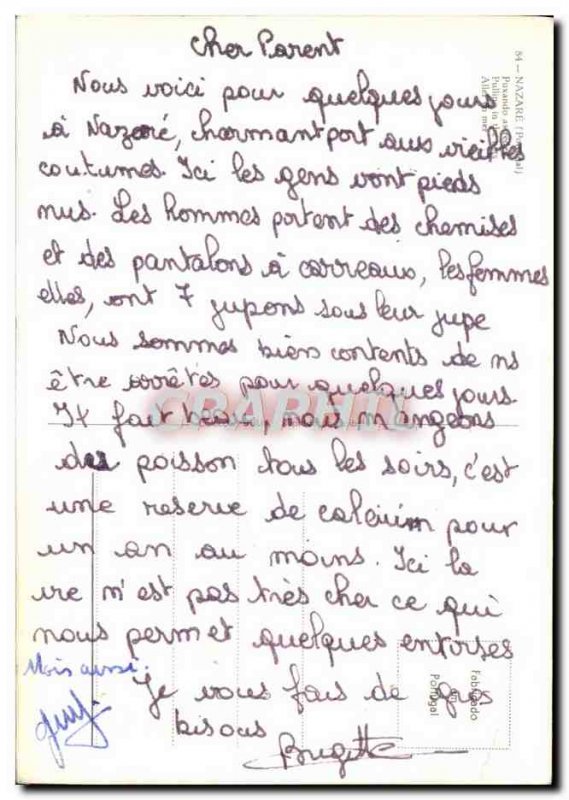 Cher Parent
Nous voici pour quelques jours
à Nazaré, charmant port aux vieilles
coutumes. Ici les gens vont pieds
nus. Les hommes portent des chemises
et des pantalons à carreaux, les femmes
elles, ont 7 jupons sous leur jupe
Nous sommes bien contents de ns
être arrêtés pour quelques jours.
Il fait beau, nous mangeons
des poisson tous les soirs, c'est
une reserve de calcium pour
un an au moins. Ici la
vie n'est pas très cher ce qui
nous permet quelques entorses
Je vous fais de gros
bisous
Brigitte
Mois aussi.
84 — NAZARÉ (Portugal)
Puxando
Pulling in
CPAPHIL
Fabricado
Portugal